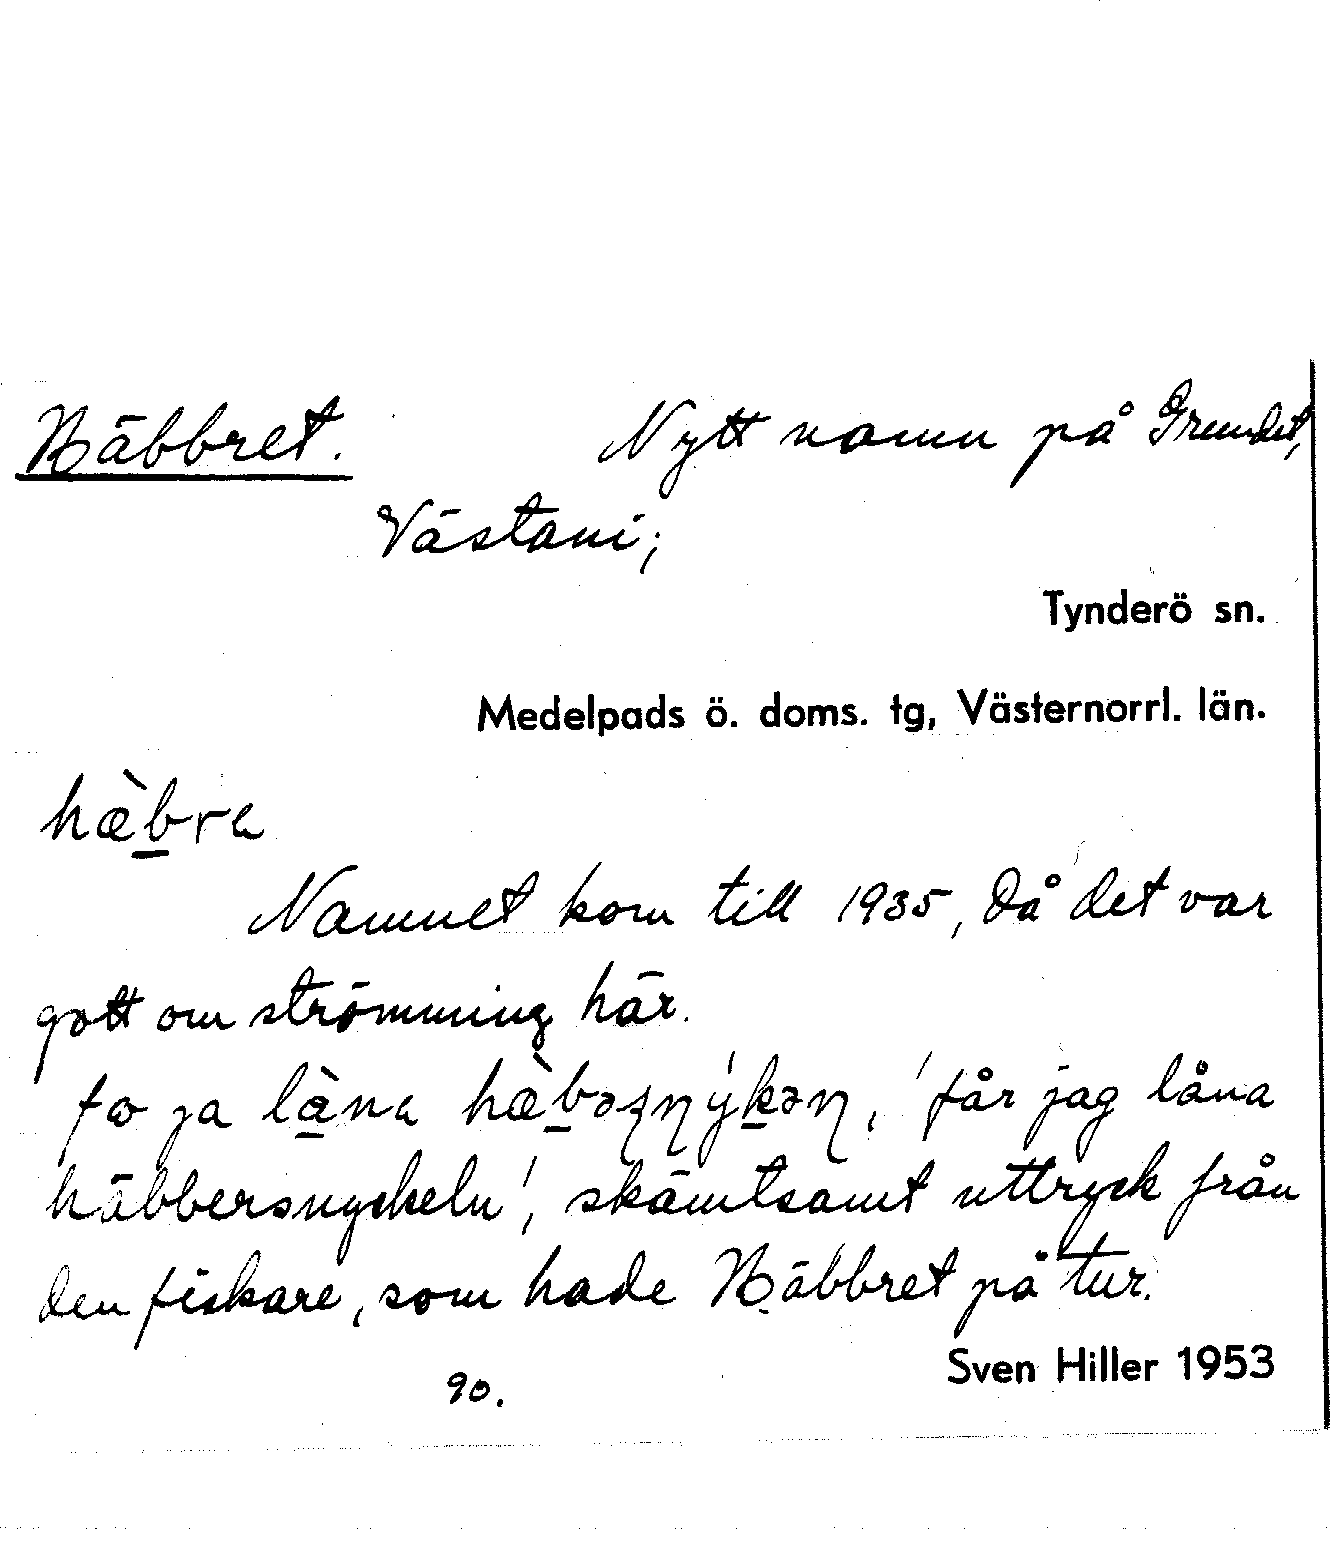 Häbbret. Nytt namn på Grundet,
Västani;
Tynderö sn.
Medelpads ö. doms. tg, Västernorrl. län.
hæ̀b̲ra
Namnet kom till 1935, då det var
gott om strömming här.
fo ja là̲na hæ̀b̲əʂɳýk̲əɳ, 'får jag låna
häbbersnyckeln', skämtsamt uttryck från
den fiskare, som hade Häbbret på tur.
Sven Hiller 1953
90.